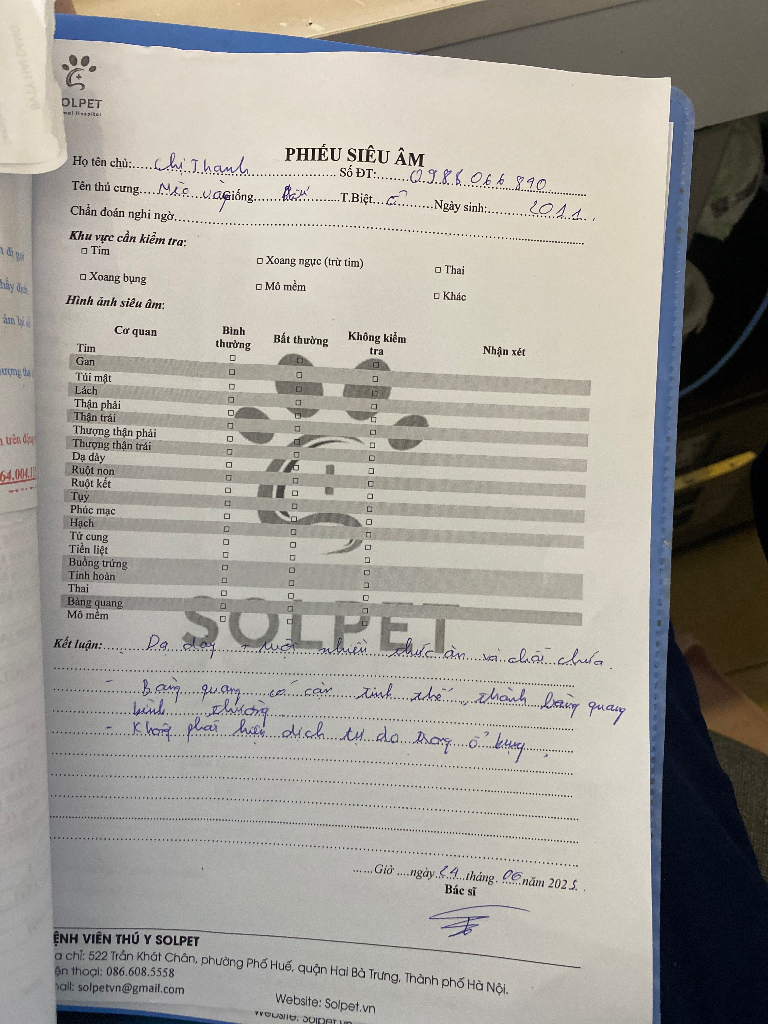 OLPET
PHIẾU SIÊU ÂM
Họ tên chủ: Chị Thanh Số ĐT: 0988 066 890
Tên thú cưng Mèo vàg Giống T.Biệt Ngày sinh: 2011.
Chẩn đoán nghi ngờ
Khu vực cần kiểm tra:
□ Tim □ Xoang ngực (trừ tim) □ Thai
□ Xoang bụng □ Mô mềm □ Khác
Hình ảnh siêu âm:
Cơ quan Bình thường Bất thường Không kiểm tra Nhận xét
Tim □ □ □
Gan □ □ □
Túi mật □ □ □
Lách □ □ □
Thận phải □ □ □
Thận trái □ □ □
Thượng thận phải □ □ □
Thượng thận trái □ □ □
Dạ dày □ □ □
Ruột non □ □ □
Ruột kết □ □ □
Tụy □ □ □
Phúc mạc □ □ □
Hạch □ □ □
Tử cung □ □ □
Tiền liệt □ □ □
Buồng trứng □ □ □
Tinh hoàn □ □ □
Thai □ □ □
Bàng quang □ □ □
Mô mềm □ □ □
SOLPET
Kết luận: Dạ dày + ruột nhiều thức ăn và chất chứa.
- Bàng quang có cặn tinh thể, thành bàng quang
bình thường
- Không phát hiện dịch tự do trong ổ bụng,
......Giờ ....ngày 24 tháng 06 năm 2025.
Bác sĩ
ỆNH VIỆN THÚ Y SOLPET
a chỉ: 522 Trần Khát Chân, phường Phố Huế, quận Hai Bà Trưng, Thành phố Hà Nội.
ện thoại: 086.608.5558
ail: solpetvn@gmail.com Website: Solpet.vn
Website: Solpet.vn